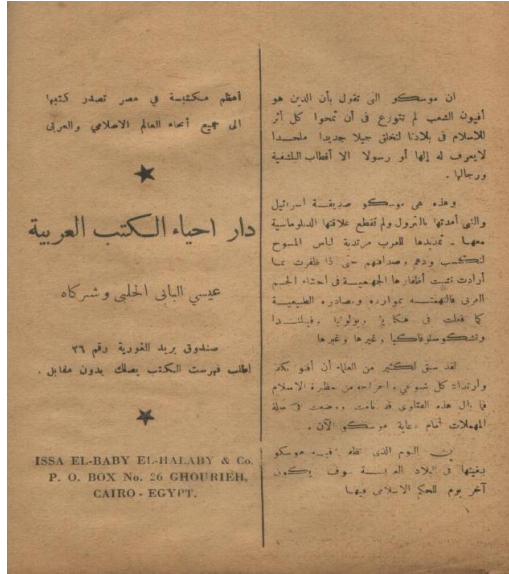 ان موسكو التى تقول بأن الدين هو
أفيون الشعب لم تتورع فى أن تمحوا كل أثر
للاسلام فى بلادنا لتخلق جيلا جديدا ملحدا
لايعرف له إلها أو رسولا الا أقطاب البلشفية
ورجالها .
وهذه هى موسكو صديقة اسرائيل
والتى أمدتها بالبترول ولم تقطع علاقتها الدبلوماسية
معها ـ تمد يدها للعرب مرتدية لباس المسوح
لتكسب ودهم وصداقتهم حتى اذا ظفرت بما
أرادت نشبت أظفارها الجهنمية فى أحشاء الجسم
العربى فالتهمته بموارده ومصادره الطبيعية
كما فعلت فى وبولونيا وفنلندا
وتشكوسلوفاكيا وغيرها وغيرها
لقد سبق لكثير من العلماء أن أفتو بكفر
وارتداد كل شيوعى واخراجه من حظيرة الاسلام
فما بال هذه الفتاوى قد نامت ووضعت فى سلة
المهملات أمام دعاية موسكو الآن .
اليوم الذى فيه موسكو
ببغيتها فى البلاد العربية سوف يكون
آخر يوم للحكم الاسلامى فيها
أعظم مكتبة فى مصر تصدر كتبها
الى جميع أنحاء العالم الاسلامي والعربى
دار احياء الكتب العربية
عيسي البابى الحلبى وشركاه
صندوق بريد الغورية رقم ٢٦
اطلب فهرست الكتب يصلك بدون مقابل .
ISSA EL-BABY EL-HALABY & Co.
P. O. BOX No. 26 GHOURIEH,
CAIRO - EGYPT.